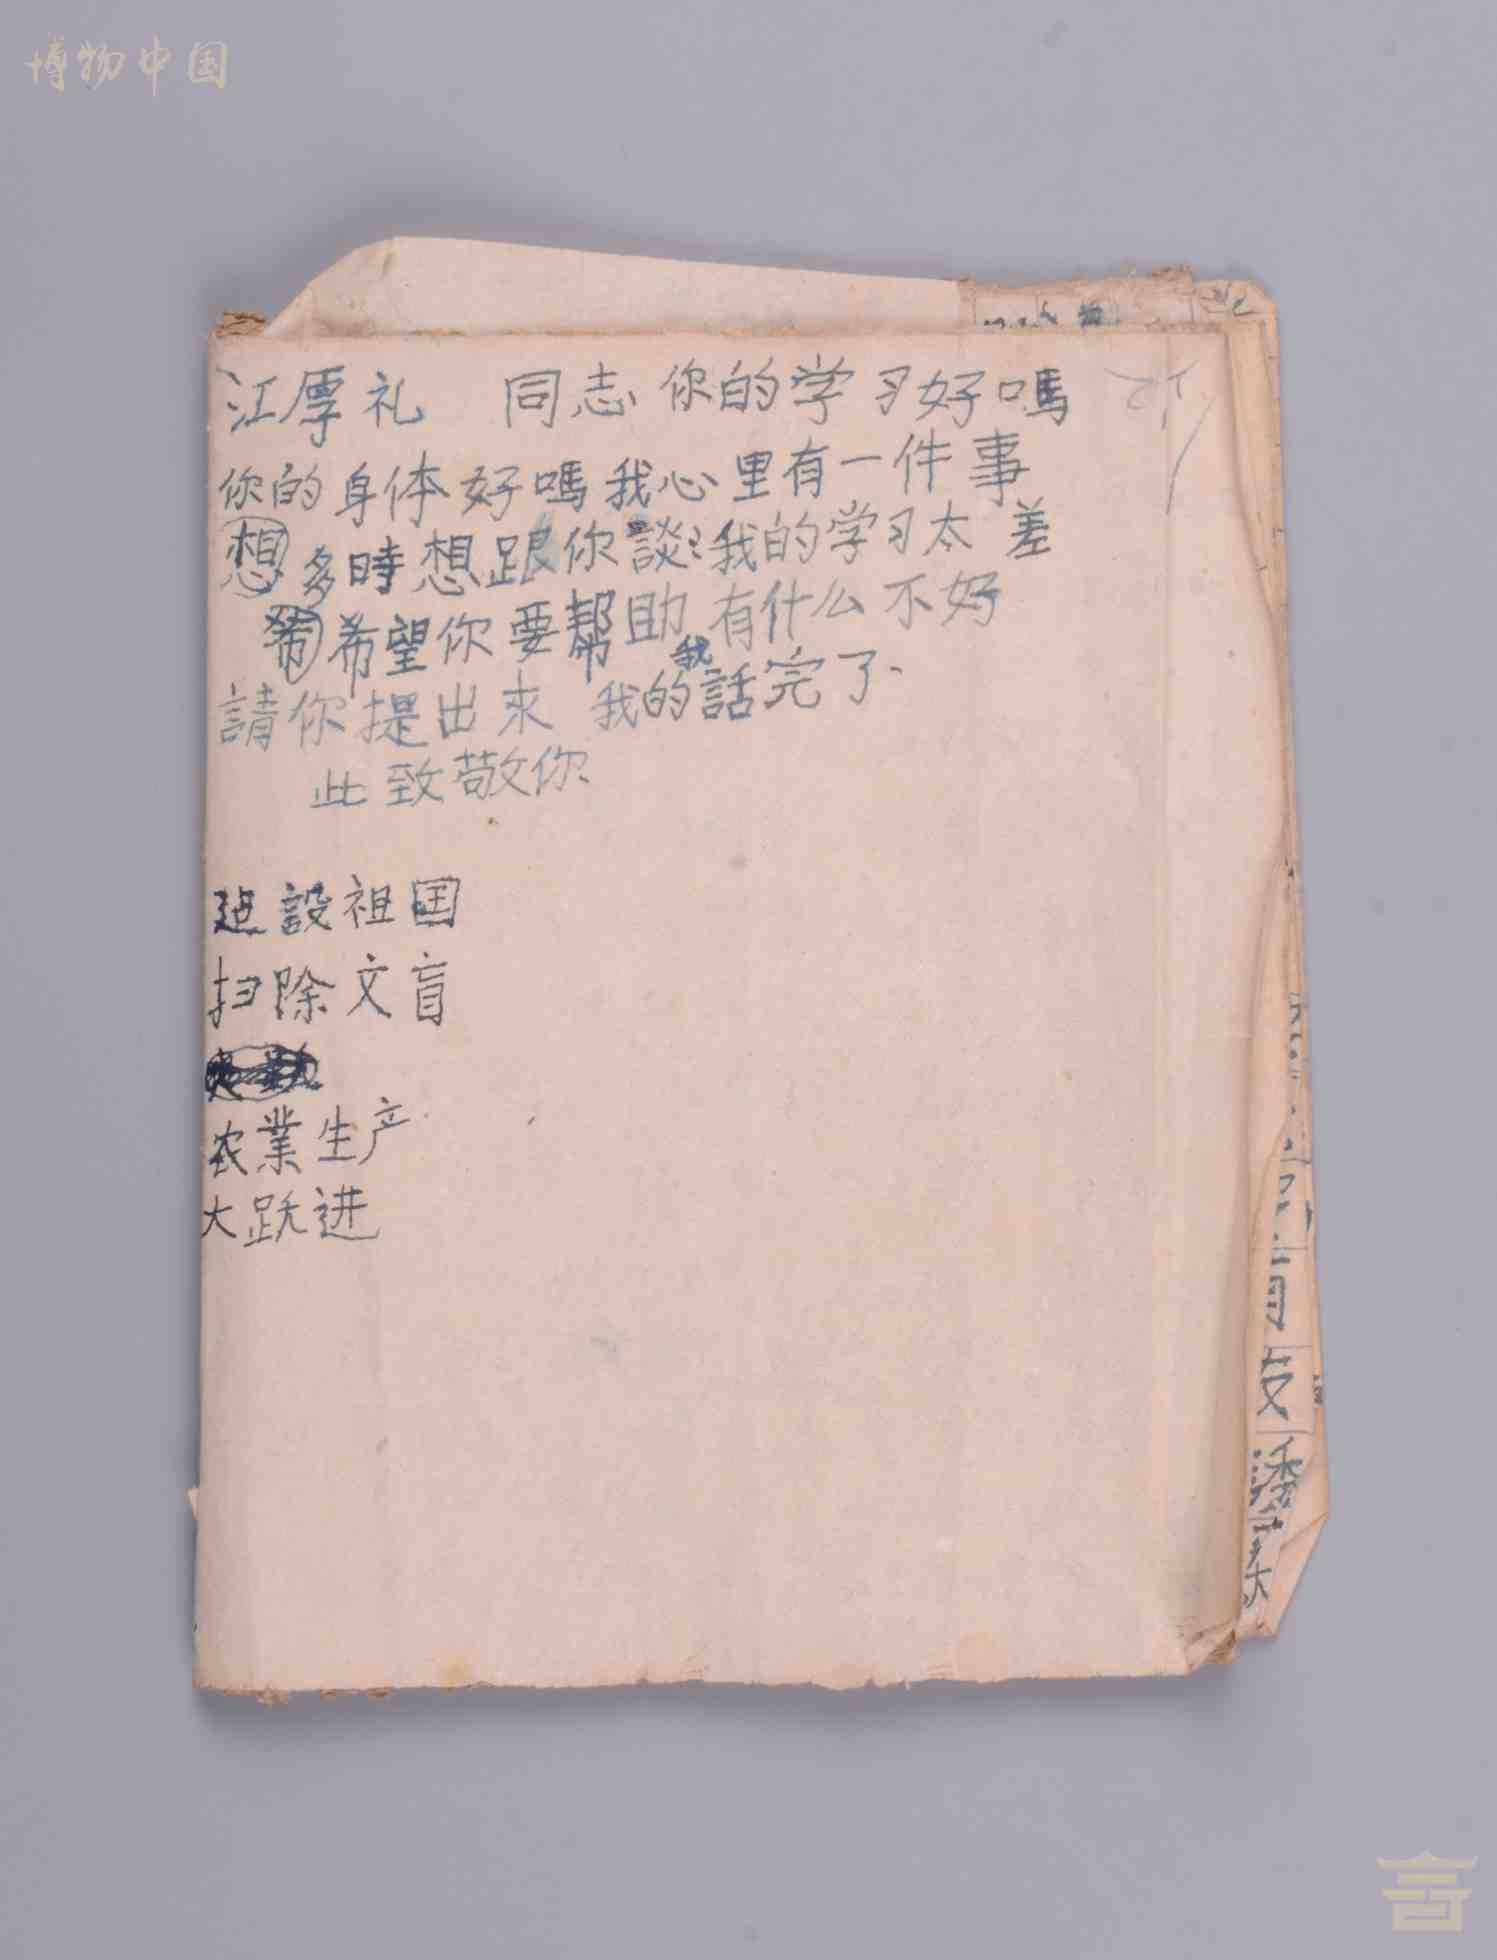 博物中国
江厚礼 同志 你的学习好嗎
你的身体好嗎我心里有一件事
想多時想跟你談:我的学习太差
希希望你要帮助我有什么不好
請你提出来 我的話完了.
此致敬你
建設祖国
扫除文盲
农業生产
大跃进